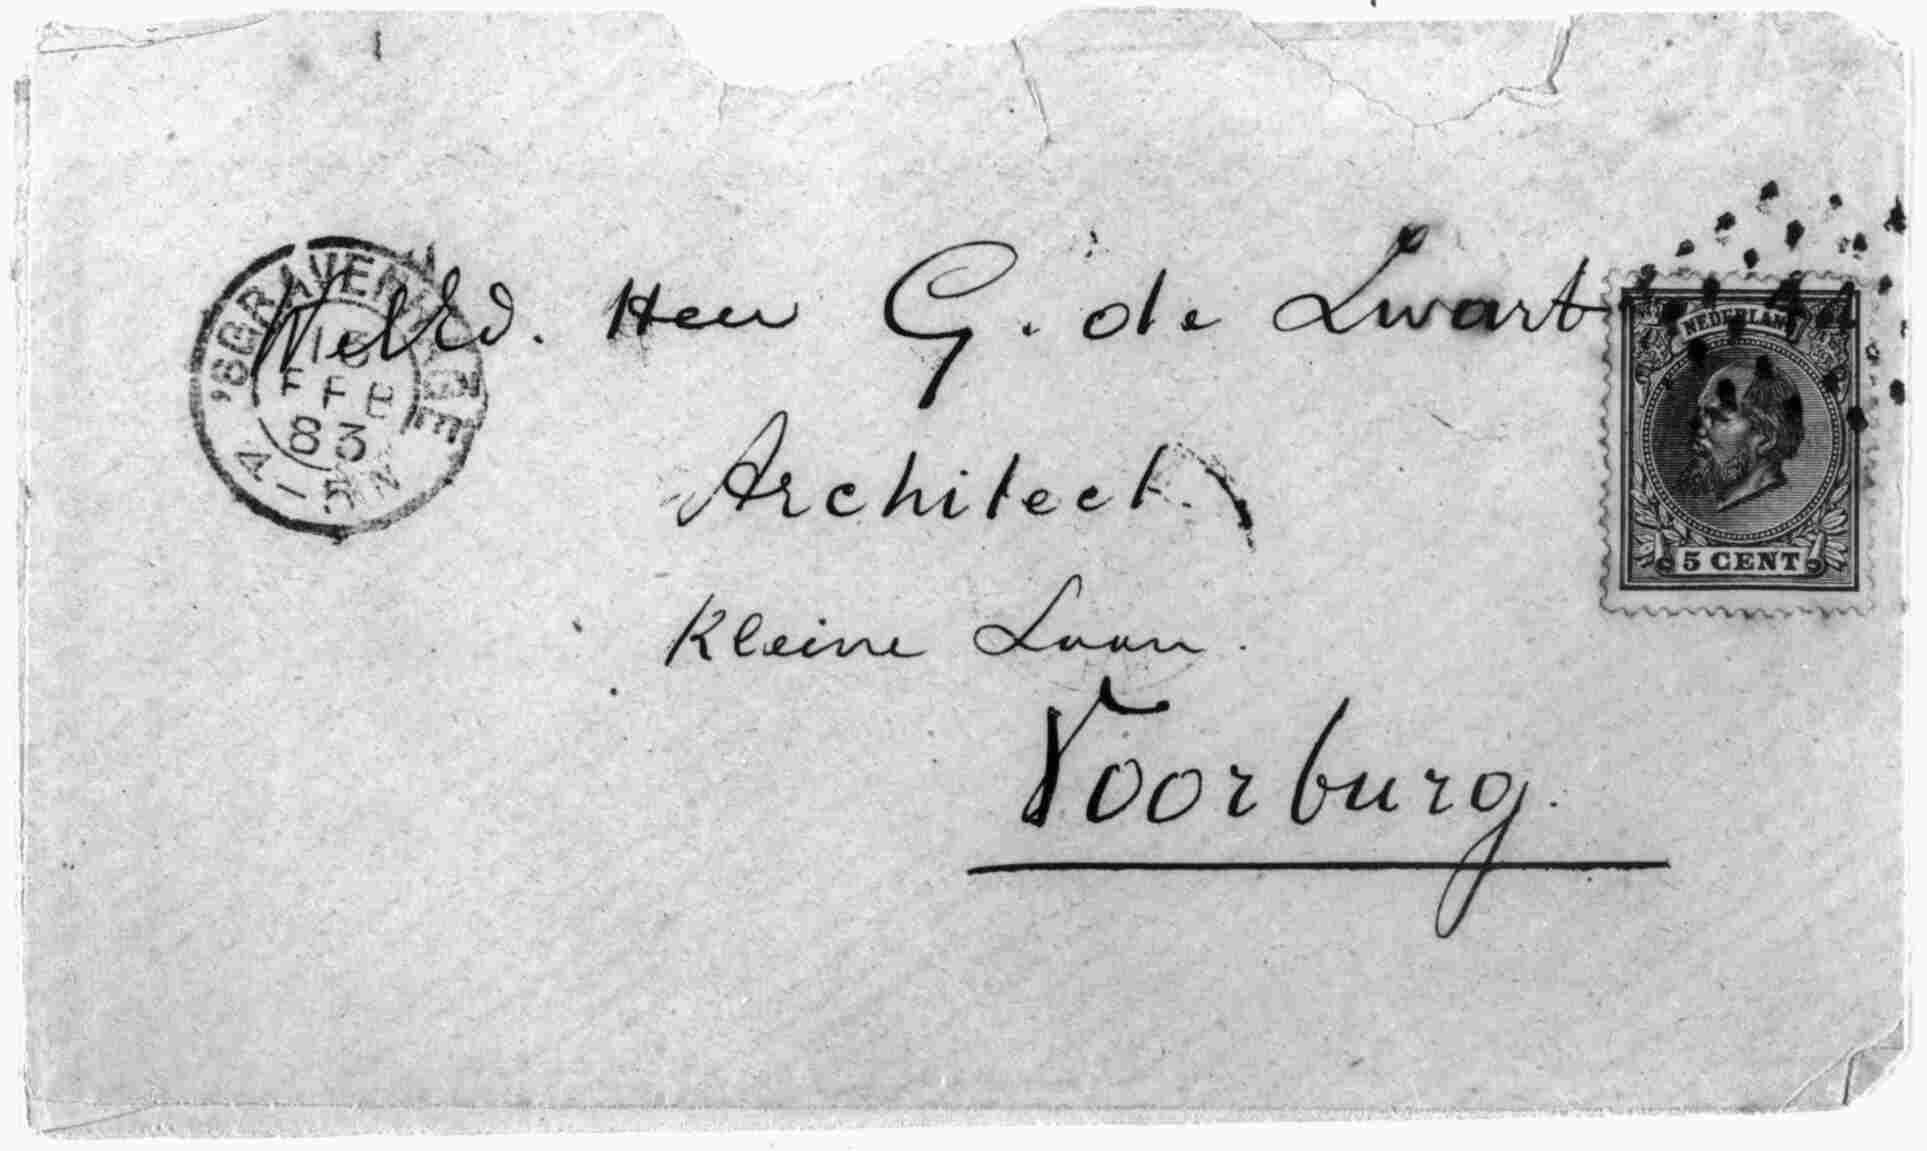 'SGRAVENHAGE
15
FEB
83
4-5N
WelEd. Heer G. de Zwart
Architect.
Kleine Laan.
Voorburg.
NEDERLAND
5 CENT